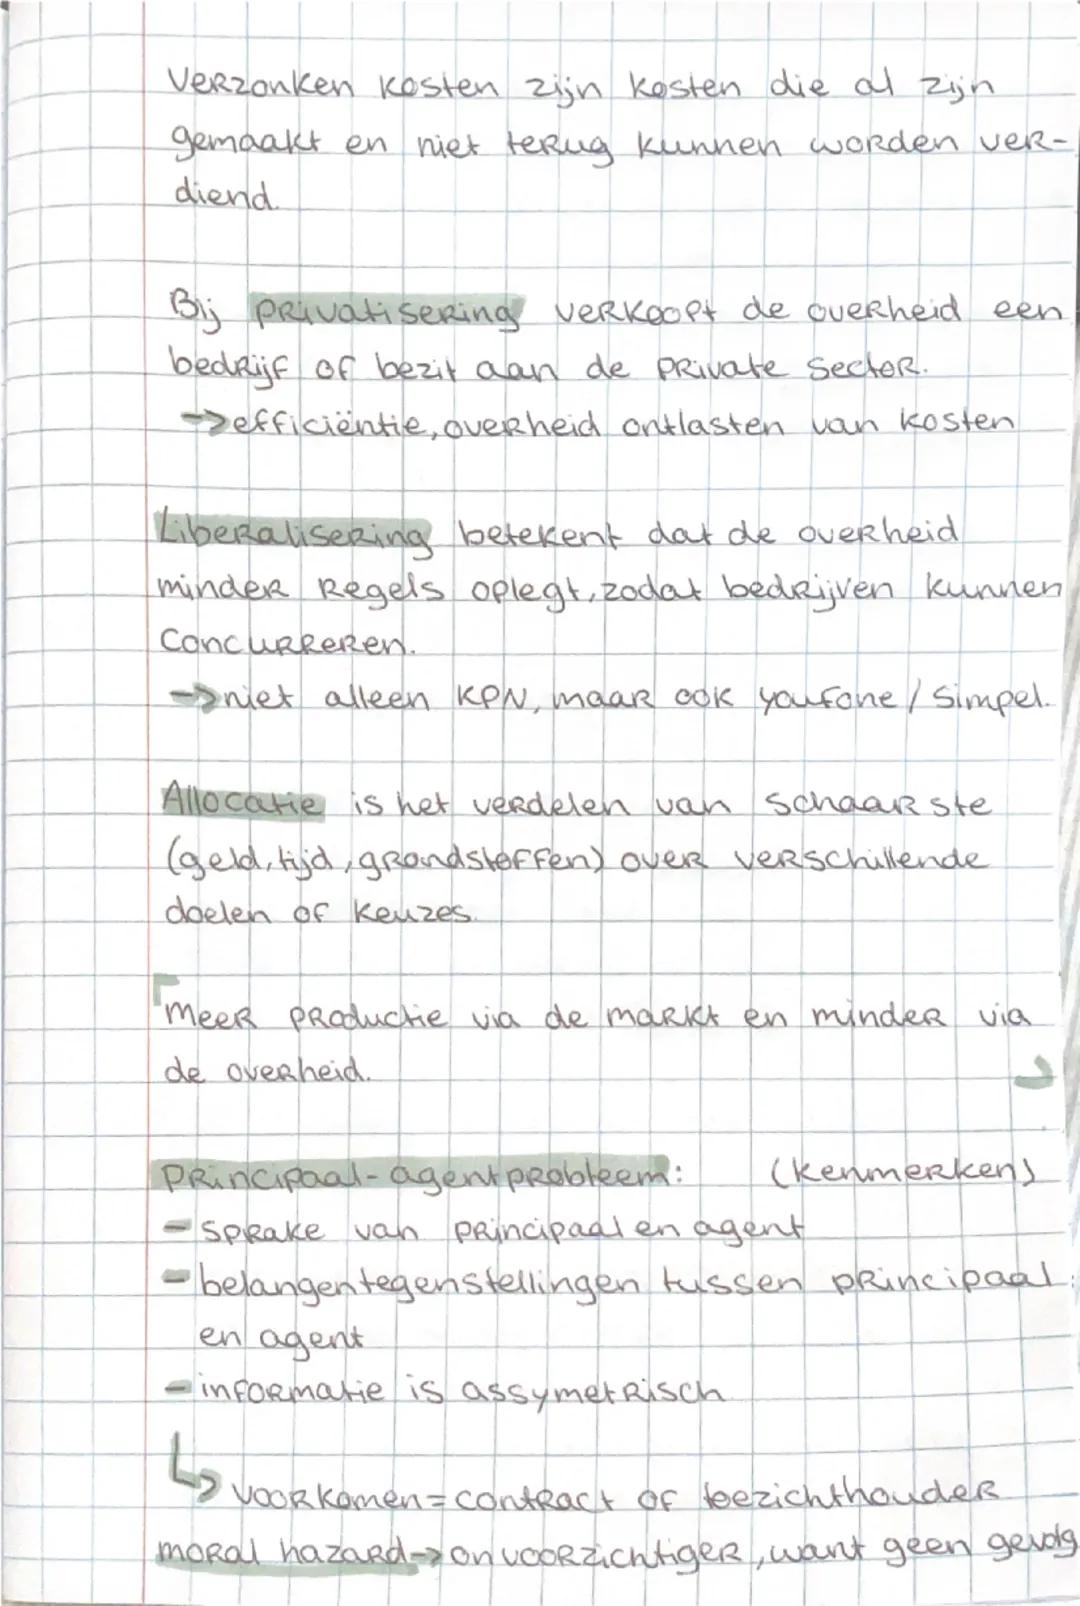 Verzonken kosten zijn kosten die al zijn
gemaakt en niet terug kunnen worden ver-
diend.
Bij privatisering verkoopt de overheid een
bedrijf of bezit aan de private sector.
->efficiëntie, overheid ontlasten van kosten
Liberalisering betekent dat de overheid
minder regels oplegt, zodat bedrijven kunnen
concurreren.
->niet alleen KPN, maar ook youfone / Simpel.
Allocatie is het verdelen van schaarste
(geld, tijd, grondstoffen) over verschillende
doelen of keuzes.
Meer productie via de markt en minder via
de overheid.
Principaal-agentprobleem: (kenmerken)
- sprake van principaal en agent
- belangentegenstellingen tussen principaal
en agent
- informatie is assymetrisch
↳ voorkomen = contract of toezichthouder
moral hazard -> onvoorzichtiger, want geen gevolg